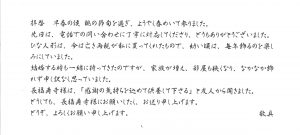 拝啓 早春の候 桃の節句を過ぎ、ようやく春めいて参りました。
先日は、電話での問い合わせにて丁寧に対応してくださり、どうもありがとうございました。
ひな人形は、今は亡き母親が私に買ってくれたもので、幼い頃は、毎年飾るのを楽し
みにしていました。
結婚する時も一緒に持ってきたのですが、家族が増え、部屋も狭くなり、なかなか飾
れず申し訳なく思っていました。
長福寿寺様には、「感謝の気持ちを込めて供養して下さる」と友人から聞きました。
どうしても、長福寿寺様にお願いしたく、お送り申し上げます。
どうぞ、よろしくお願い申し上げます。
敬具